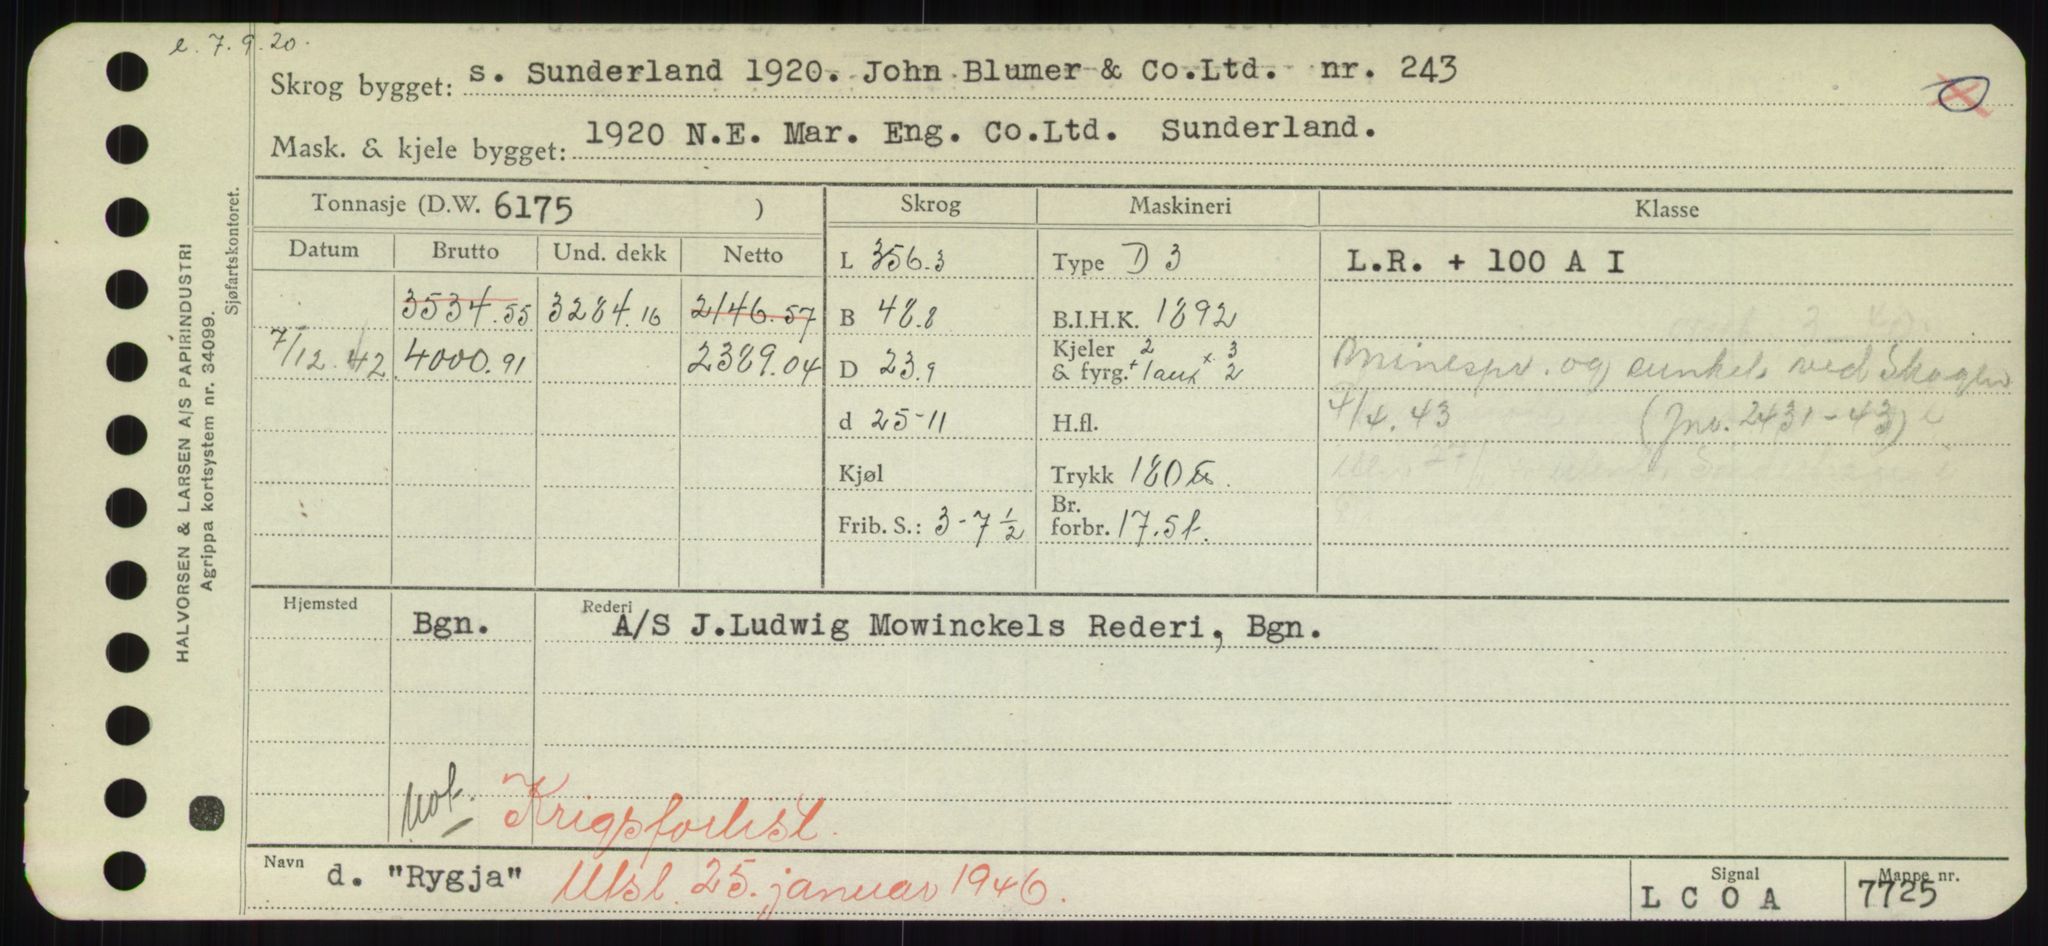 e. 7.9.20.
Skrog bygget: s. Sunderland 1920. John Blumer & Co.Ltd. nr. 243
Mask. & kjele bygget: 1920 N.E. Mar. Eng. Co.Ltd. Sunderland.
Tonnasje (D.W. 6175 ) Skrog Maskineri Klasse
Datum Brutto Und. dekk Netto L 356.3 Type D 3 L.R. + 100 A I
3534.55 3284.16 2146.57 B 48.8 B.I.H.K. 1892
7/12. 42 4000.91 2389.04 D 23.9 Kjeler & fyrg. 2 + 1 aux × 3 2 minespr. og sunket ved Skagen
d 25-11 H.fl. 4/4.43 (Jnr. 2431-43)
Kjøl Trykk 180 lbs.
Frib. S.: 3-7 1/2 Br. forbr. 17.5 t.
Hjemsted Bgn. Rederi A/S J.Ludwig Mowinckels Rederi, Bgn.
Not. Krigsforlist.
Navn d. "Rygja" Utsl. 25. januar 1946. Signal L C O A Mappe nr. 7725
HALVORSEN & LARSEN A/S PAPIRINDUSTRI
Agrippa kortsystem nr. 34099.
Sjøfartskontoret.